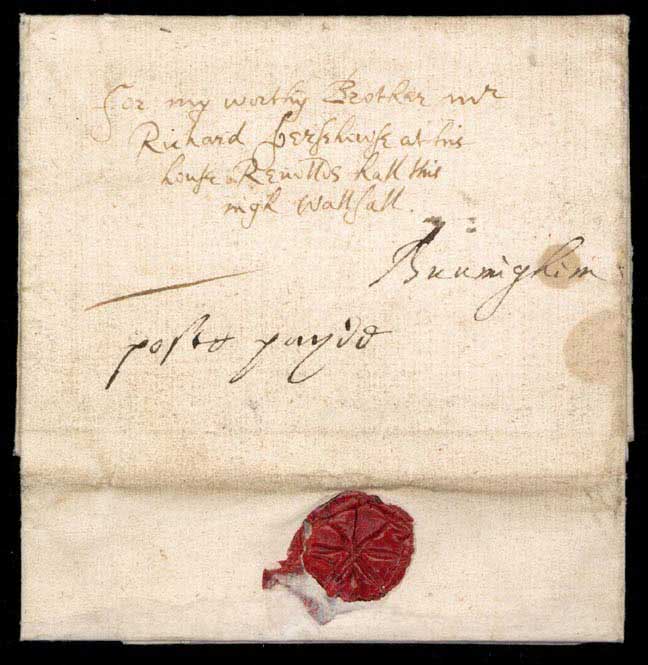 For my worthy Brother mr
Richard Gershouse at his
house Renolds hall this
nigh wallsall.
Burmighim
poste payde